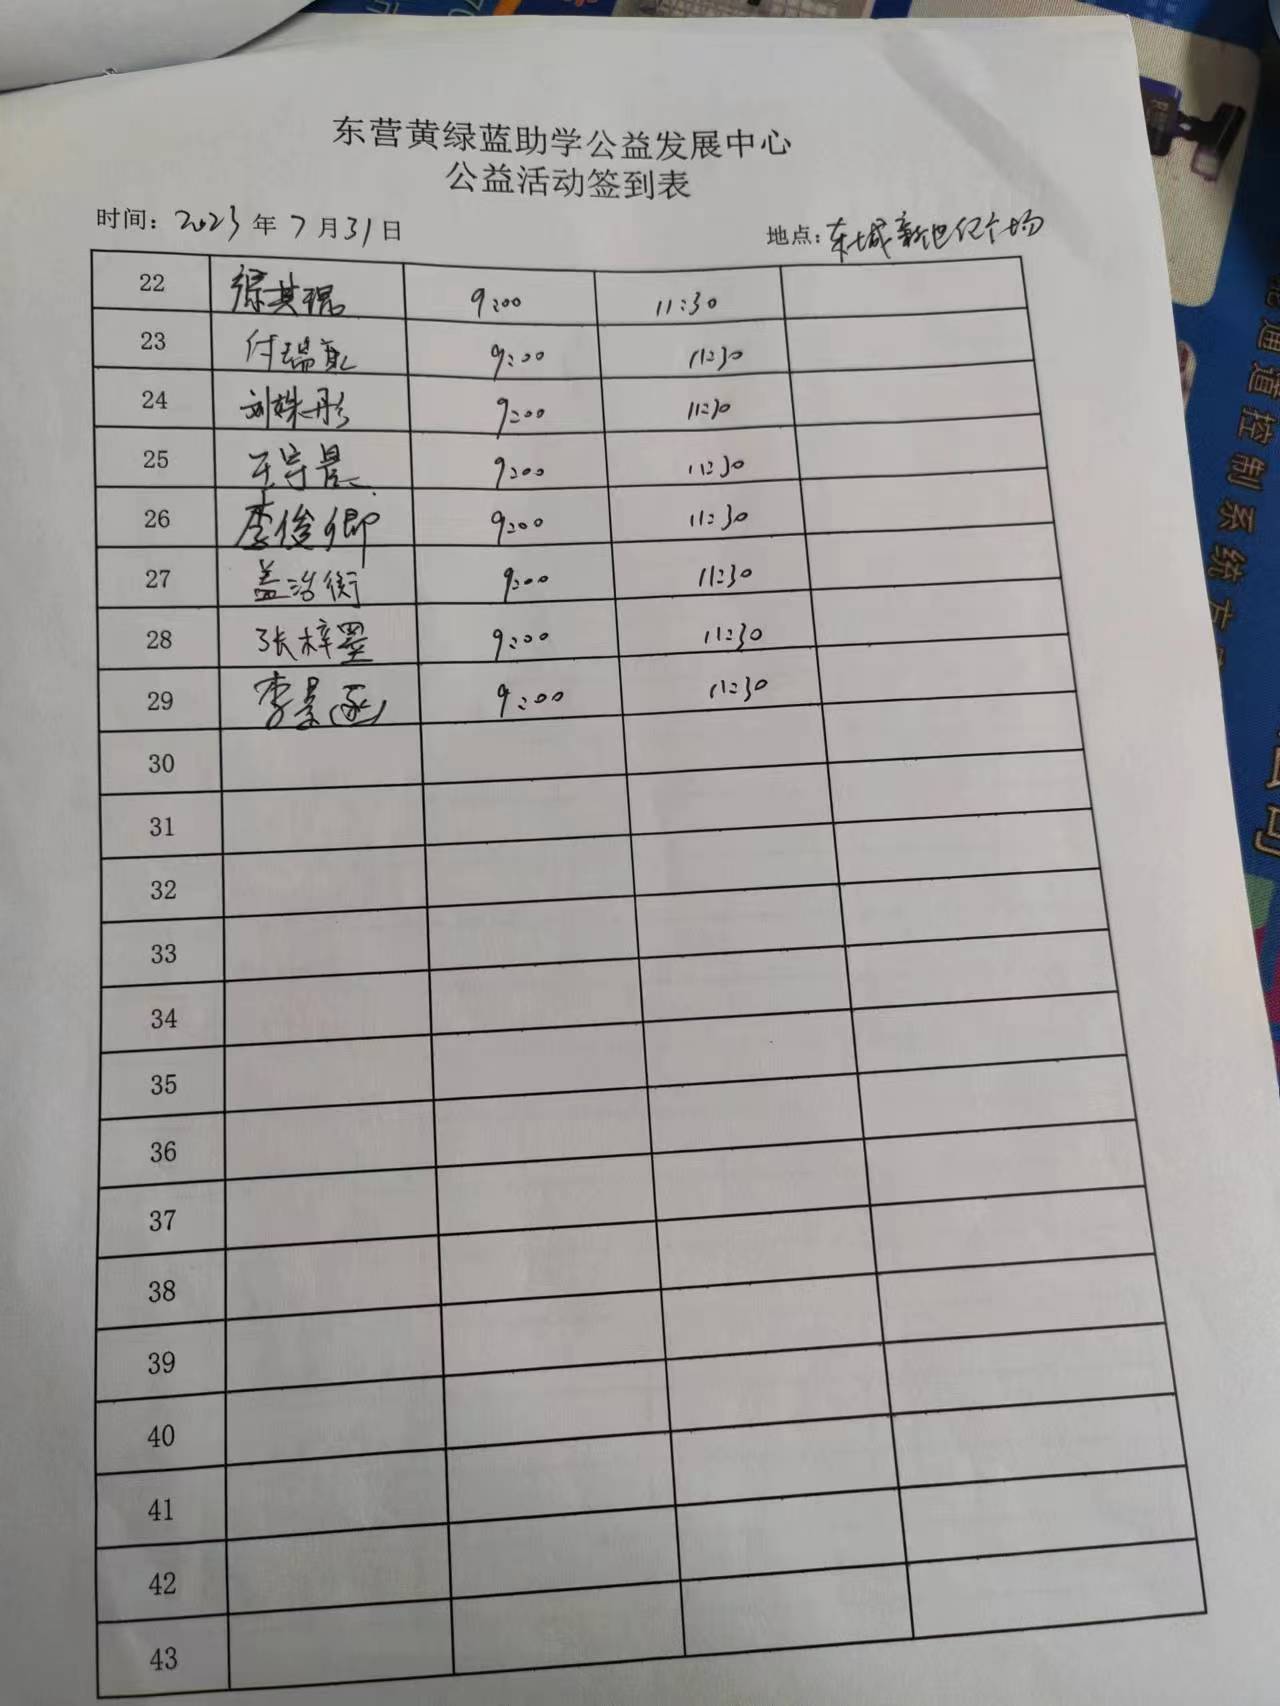 东营黄绿蓝助学公益发展中心
公益活动签到表
时间：2023年7月31日 地点：东城新世纪广场
22 徐其琨 9:00 11:30
23 付瑞 9:00 11:30
24 刘姝彤 9:00 11:30
25 王宇晨 9:00 11:30
26 李俊卿 9:00 11:30
27 盖浩衡 9:00 11:30
28 张梓墨 9:00 11:30
29 李景 9:00 11:30
30
31
32
33
34
35
36
37
38
39
40
41
42
43
通道控制系统
司